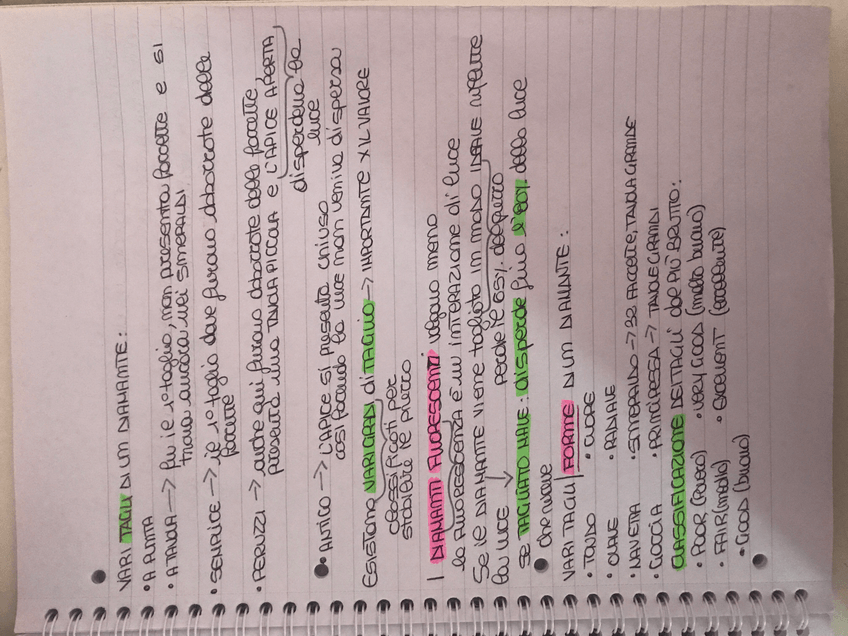 VARI TAGLI DI UN DIAMANTE:
• A PUNTA
• A TAVOLA → fu il 1° taglio, non presenta faccette e si
trova ancora nei SMERALDI
• SEMPLICE → il 1° taglio dove furono abbozzate delle
faccette
• PERUZZI → anche qui furono abbozzate delle faccette,
presenta una TAVOLA PICCOLA e L'APICE APERTA,
disperdeva la
luce
• ANTICO → L'APICE SI presenta CHIUSO
così facendo la luce non veniva dispersa
Esistono VARI GRADI di TAGLIO → IMPORTANTE X IL VALORE
classificati per
stabilire il prezzo
I DIAMANTI FLUORESCENTI valgono meno
la FLUORESCENZA è un INTERAZIONE di luce
Se il DIAMANTE viene tagliato in modo IDEALE riflette
la luce → perde il 65% del prezzo
SE TAGLIATO MALE: disperde fino l' 80% della luce
che riceve
VARI TAGLI/FORME DI UN DIAMANTE:
• TONDO • CUORE
• OVALE • RADIALE
• NAVETTA • SMERALDO → 32 FACCETTE, TAVOLA GRANDE
• GOCCIA • PRINCIPESSA → TAVOLE GRANDI
CLASSIFICAZIONE DEI TAGLI dal PIÙ BRUTTO:
• POOR • VERY GOOD (molto buono)
• FAIR (medio) • EXCELLENT (eccellente)
• GOOD (buono)